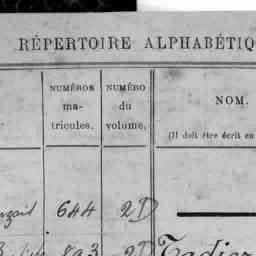 RÉPERTOIRE ALPHABÉTIQ
NUMÉROS
ma-
tricules.
NUMÉRO
du
volume.
NOM.
(Il doit être écrit en
644 2D
893 2D Tadier